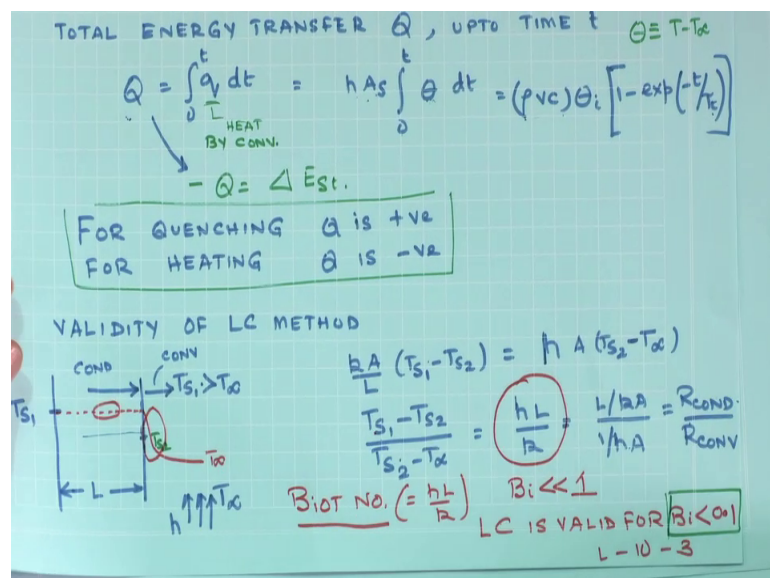 TOTAL ENERGY TRANSFER Q, UPTO TIME t θ ≡ T-T∞
Q = ∫₀ᵗ q dt = hAs ∫₀ᵗ θ dt = (ρVC)θi [1-exp(-t/τt)]
HEAT
BY CONV.
- Q = Δ ESt.
FOR QUENCHING Q is +ve
FOR HEATING Q IS -ve
VALIDITY OF LC METHOD
COND CONV
TS1 TS1 > T∞
TS2
T∞
L
h T∞
kA/L (TS1-TS2) = h A (TS2-T∞)
(TS1-TS2)/(TS2-T∞) = hL/k = (L/kA)/(1/hA) = RCOND./RCONV
BIOT NO. (= hL/k) Bi << 1
LC IS VALID FOR Bi<0.1
L-10-3